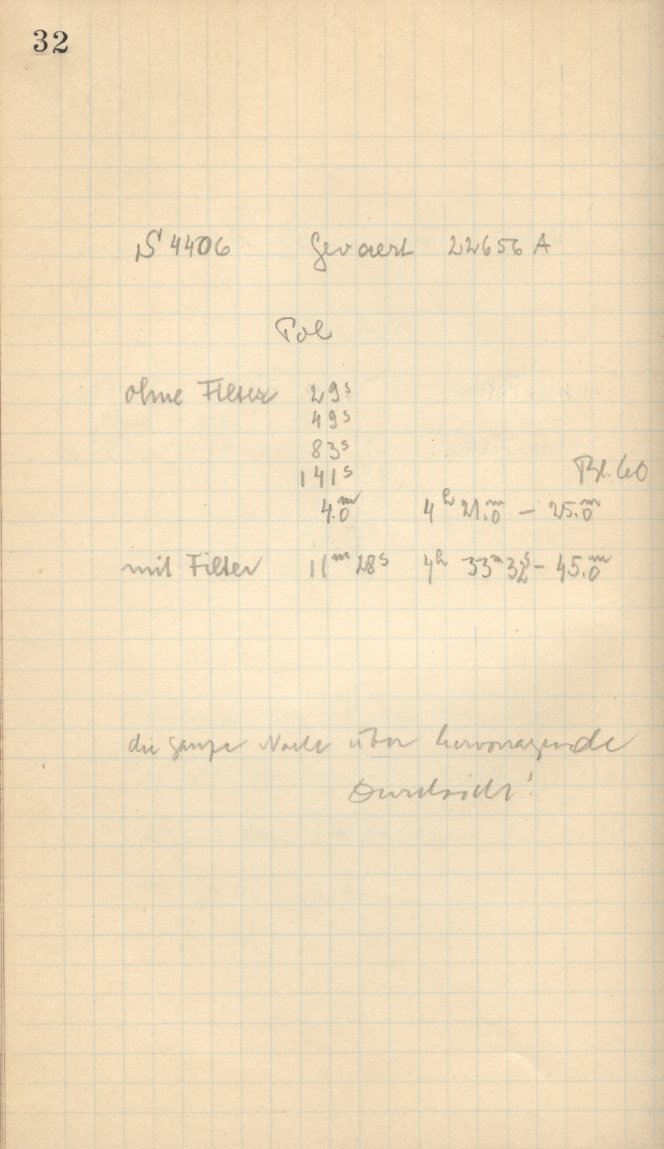 32
S 4406 Gevaert 22656 A
Pol
ohne Filter 29s
49s
83s
141s Bl. 60
4.0m 4h 21.0m – 25.0m
mit Filter 11m 28s 4h 33m 32s – 45.0m
die ganze Nacht über hervorragende
Durchsicht!